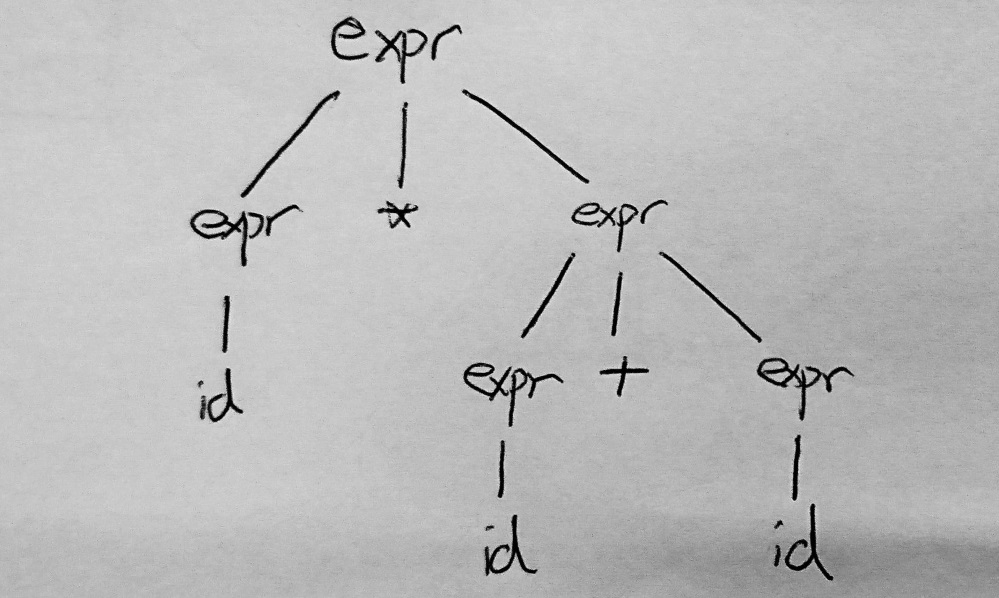 expr
expr * expr
id expr + expr
id id